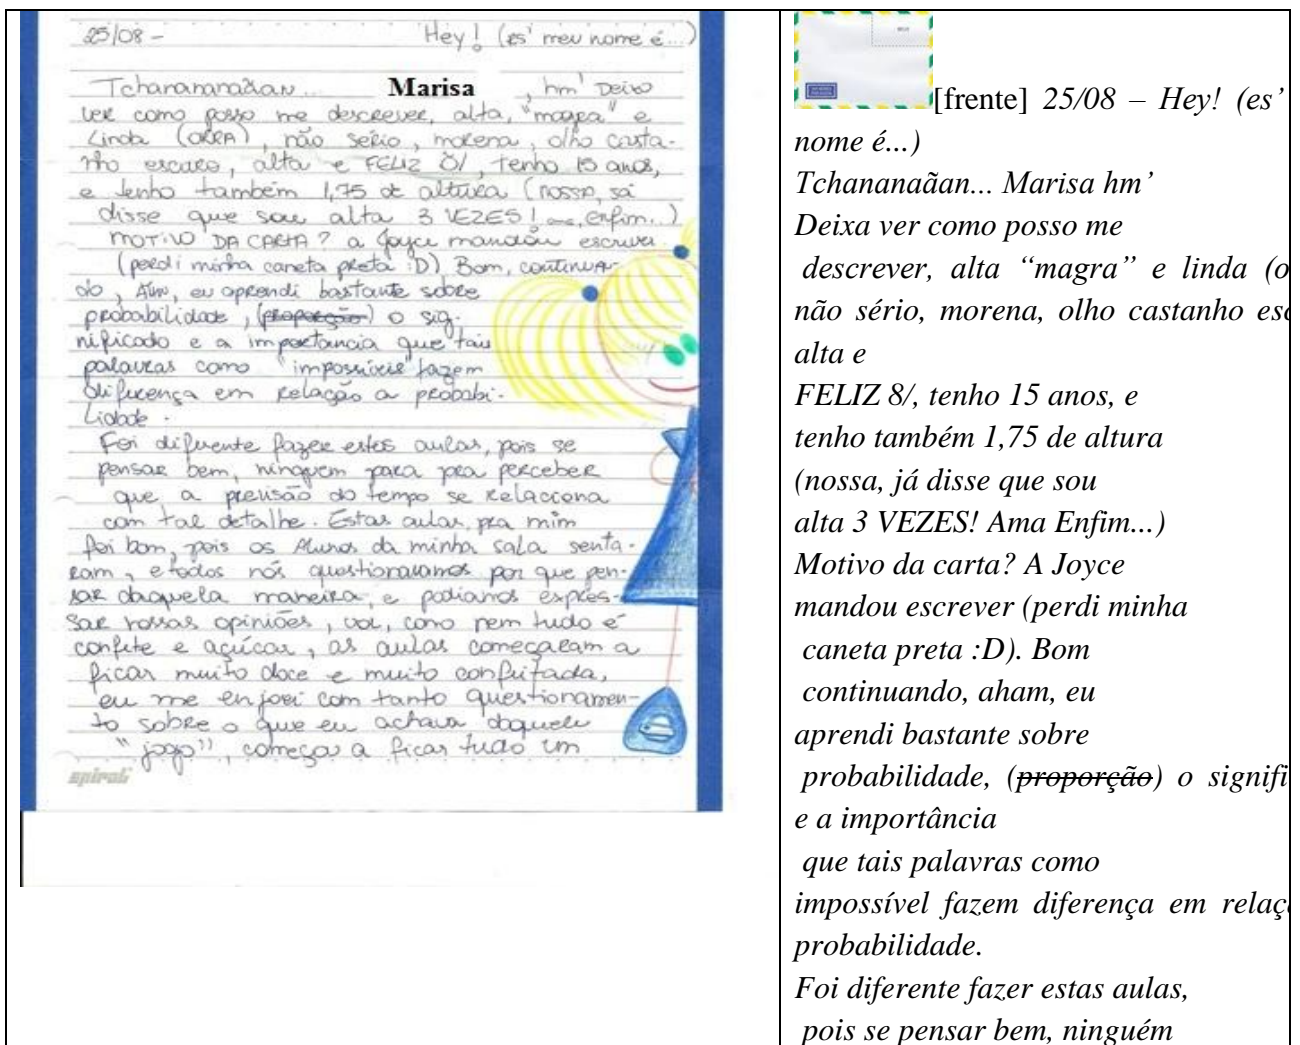 25/08 - Hey! (es' meu nome é...)
Tchanananaãan... Marisa, hm' Deixa
ver como posso me descrever, alta, "magra" e
Linda (OKPA), não sério, morena, olho casta-
nho escuro, alta e FELIZ Ö/, tenho 15 anos,
e tenho também 1,75 de altura (nossa, já
disse que sou alta 3 VEZES! enfim...)
MOTIVO DA CARTA? a Joyce mandou escrever
(perdi minha caneta preta :D) Bom, continuan-
do, eu aprendi bastante sobre
probabilidade, (proporção) o sig-
nificado e a importancia que tais
palavras como impossível fazem
diferença em relação a probabi-
lidade.
Foi diferente fazer estas aulas, pois se
pensar bem, ninguém para pra perceber
que a previsão do tempo se relaciona
com tal detalhe. Estas aulas, pra mim
foi bom, pois os Alunos da minha sala senta-
ram, e todos nós questionavamos por que pen-
sar daquela maneira, e podíamos expres-
sar nossas opiniões, como nem tudo é
confete e açúcar, as aulas começaram a
ficar muito doce e muito confeitada,
eu me enjoei com tanto questionamen-
to sobre o que eu achava daquele
"jogo", começou a ficar tudo um
spiral
[frente] 25/08 – Hey! (es'
nome é...)
Tchananaãan... Marisa hm'
Deixa ver como posso me
descrever, alta “magra” e linda (o
não sério, morena, olho castanho esc
alta e
FELIZ 8/, tenho 15 anos, e
tenho também 1,75 de altura
(nossa, já disse que sou
alta 3 VEZES! Ama Enfim...)
Motivo da carta? A Joyce
mandou escrever (perdi minha
caneta preta :D). Bom
continuando, aham, eu
aprendi bastante sobre
probabilidade, (proporção) o signifi
e a importância
que tais palavras como
impossível fazem diferença em relaç
probabilidade.
Foi diferente fazer estas aulas,
pois se pensar bem, ninguém